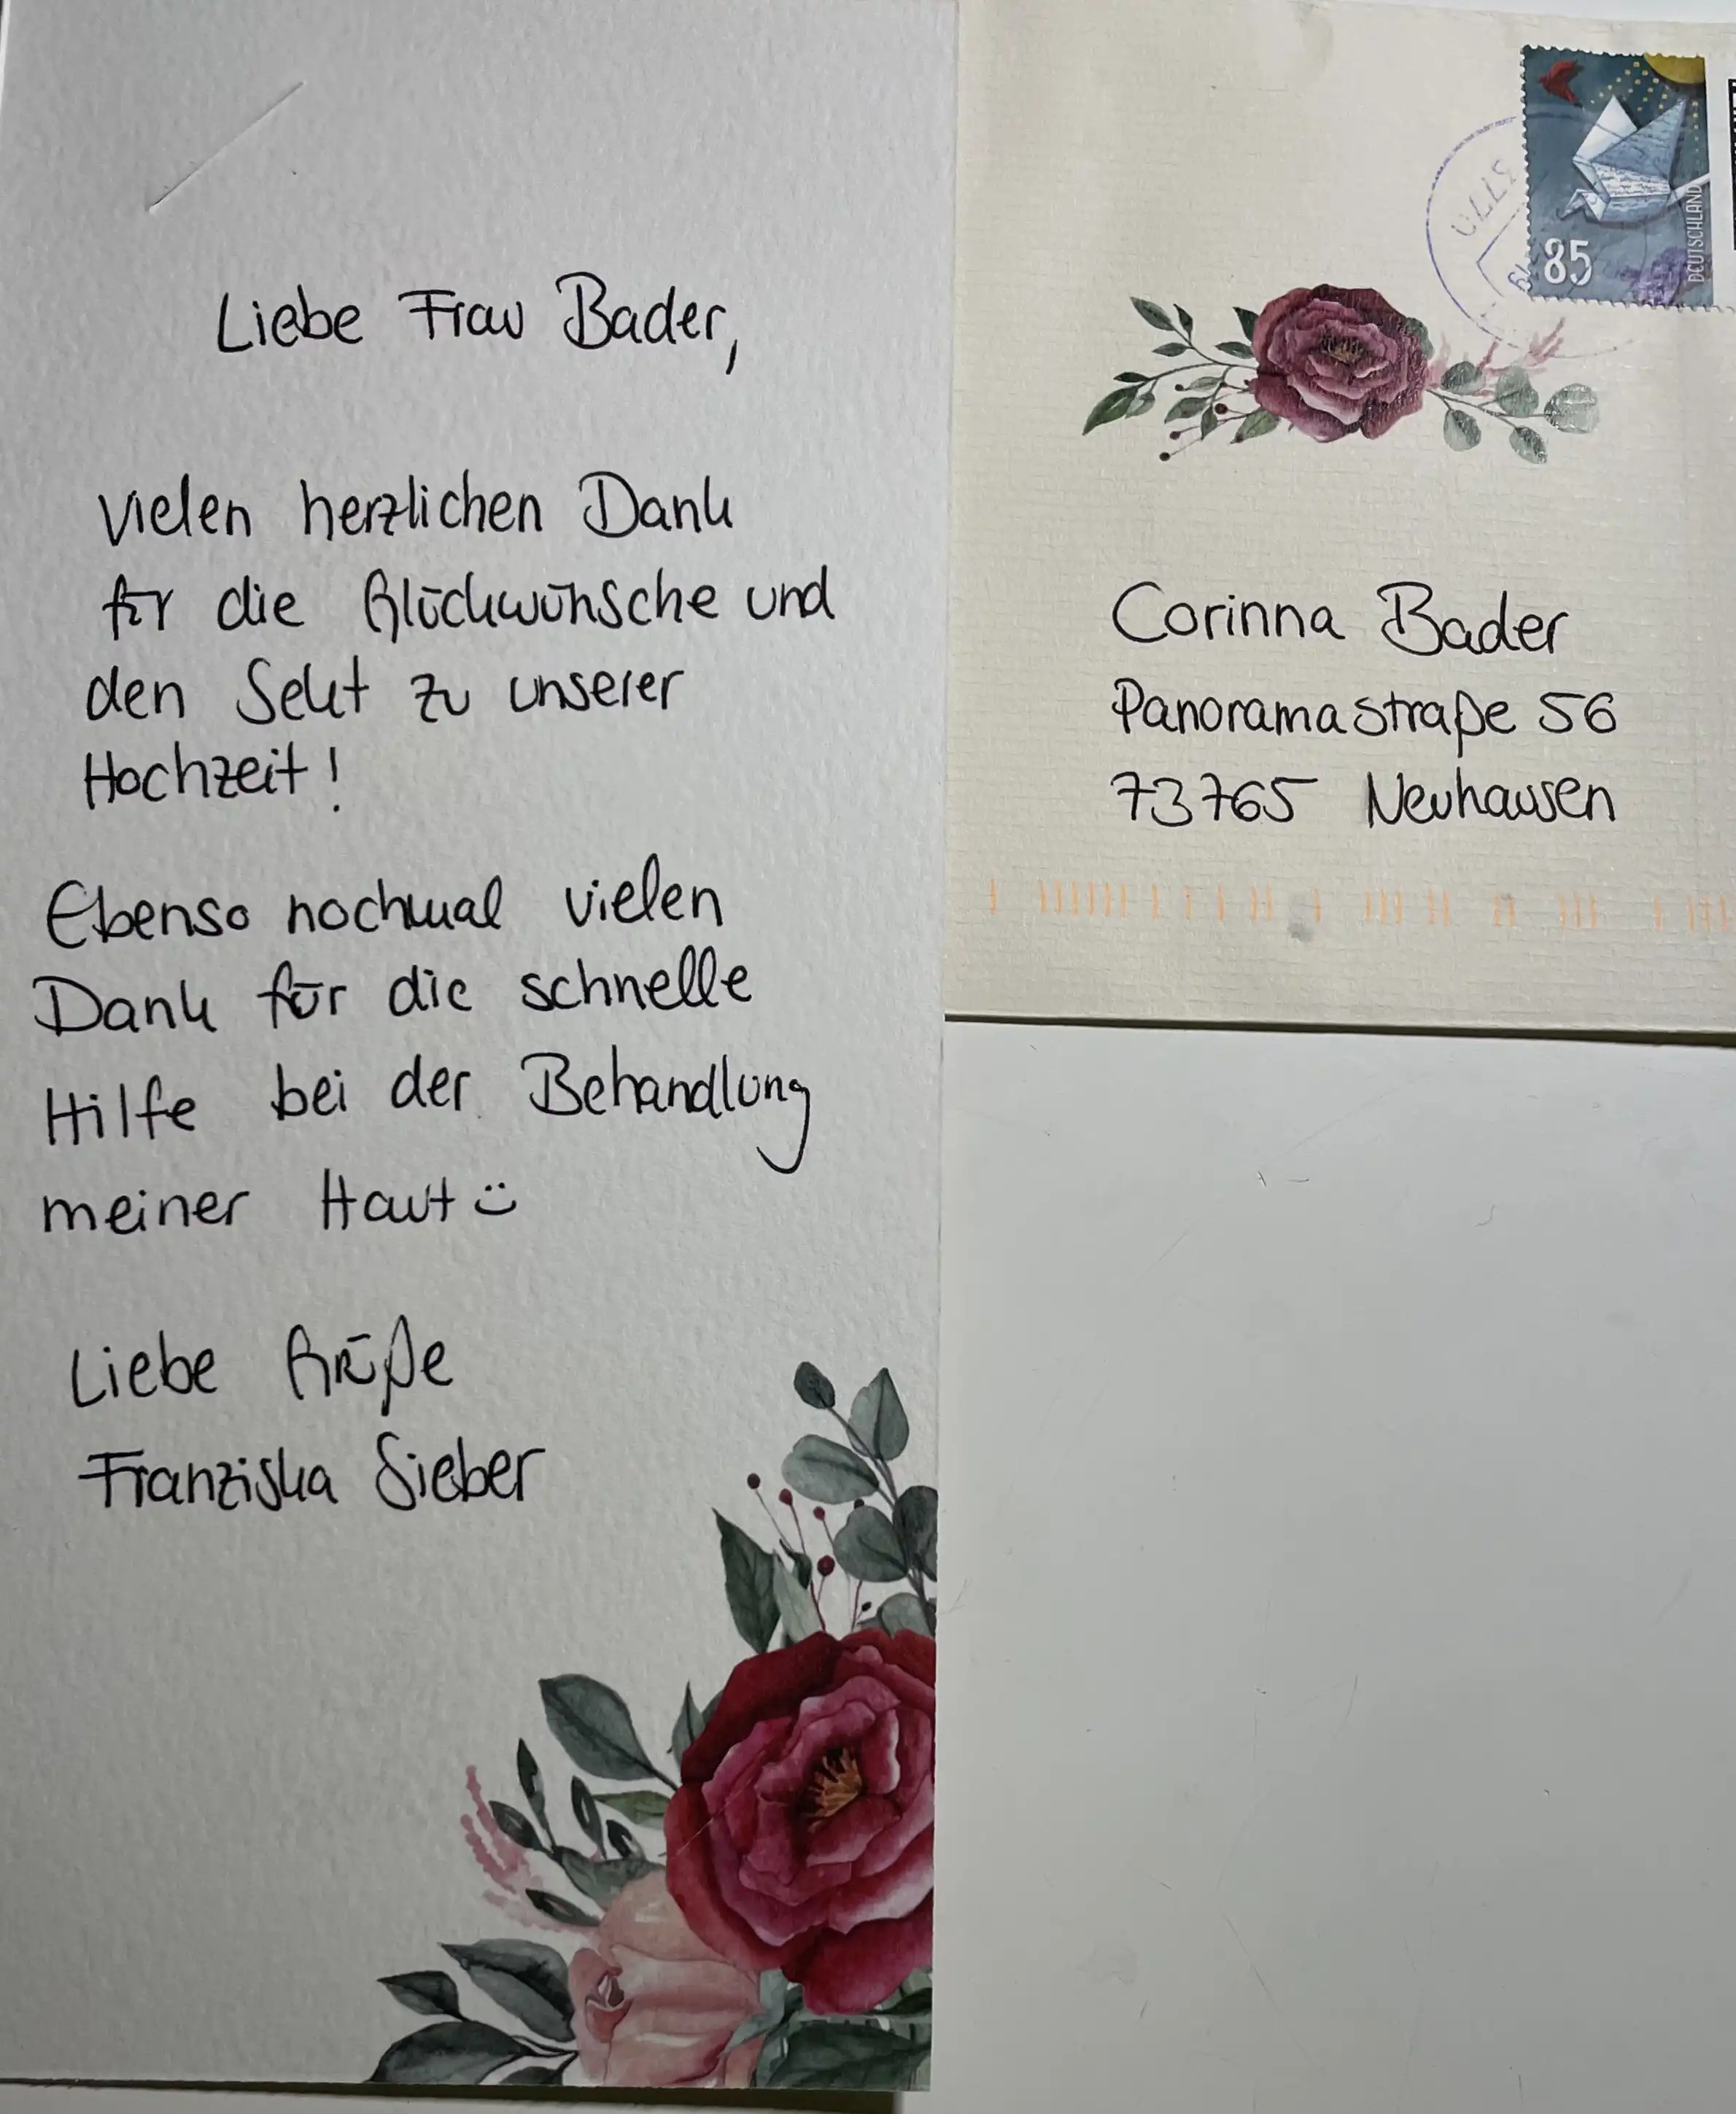 Liebe Frau Bader,
vielen herzlichen Dank
für die Glückwünsche und
den Sekt zu unserer
Hochzeit!
Ebenso nochmal vielen
Dank für die schnelle
Hilfe bei der Behandlung
meiner Haut ü
Liebe Grüße
Franziska Sieber
85
DEUTSCHLAND
Corinna Bader
Panoramastraße 56
73765 Neuhausen